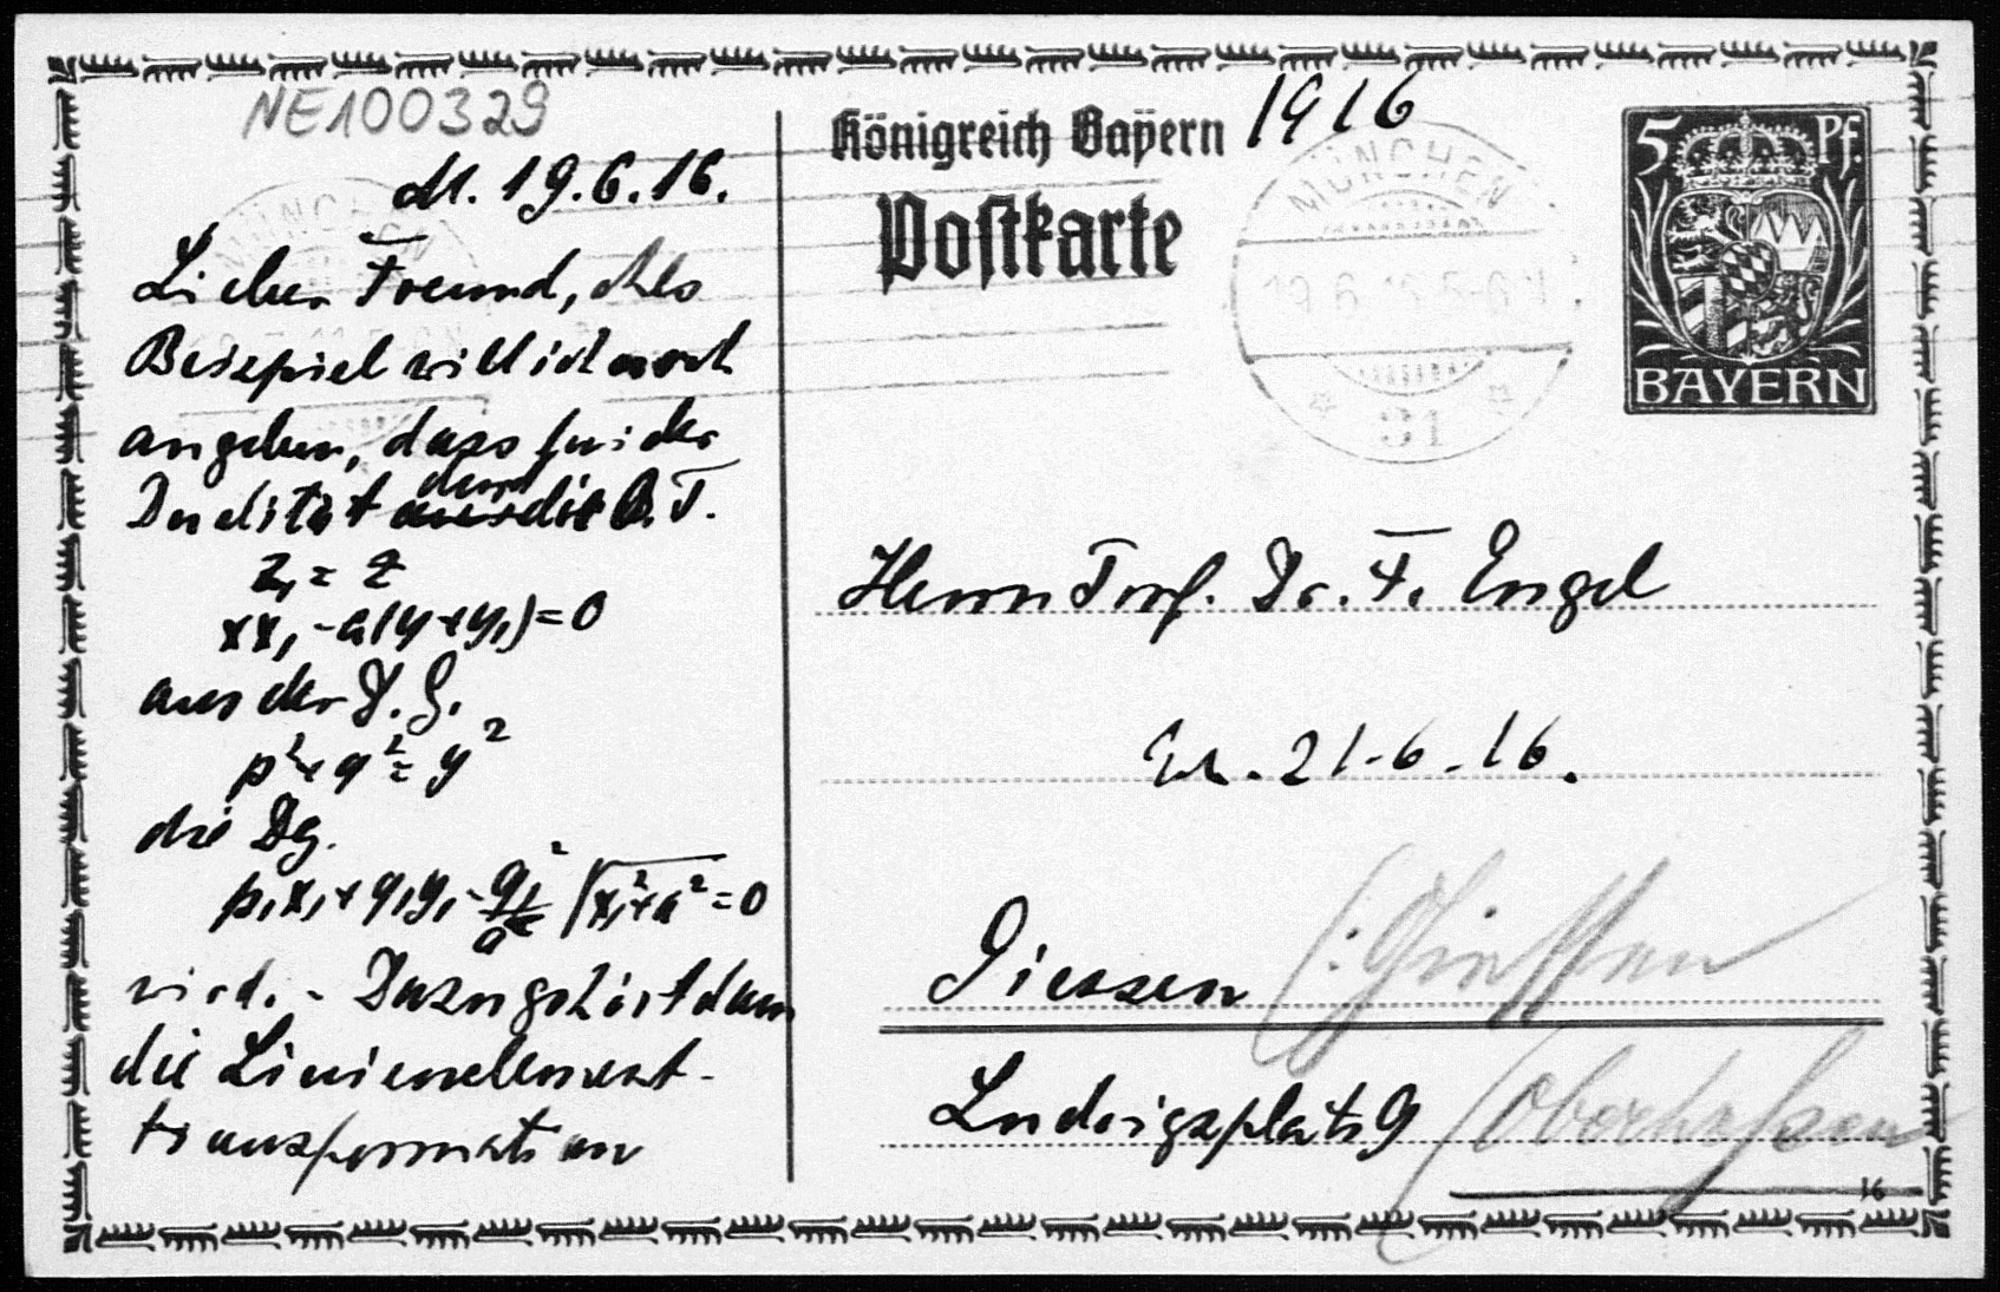 NE100329
M. 19.6.16.
Lieber Freund, Als
Beispiel will ich noch
angeben, dass bei der
Dualität durch die B.T.
z₁ = z
xx₁ - a(y+y₁) = 0
aus der D.G.
p² + q² = y²
die Dg.
p₁x₁ + q₁y₁ - q₁²/a √x₁²+a² = 0
wird. - Dazu gehört dann
die Linienelement-
transformation
Königreich Bayern 1916
Postkarte
MÜNCHEN
19.6.16 5-6 N
31
5 Pf.
BAYERN
Herrn Prof. Dr. F. Engel
Eh. 21.6.16.
Giessen (: Gießen
Ludwigsplatz 9 (Oberhessen
16